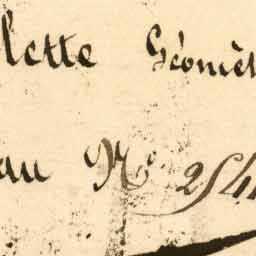 lette Géomèt
au N° 254